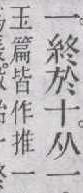 一、終於十。从一
玉篇皆作推一